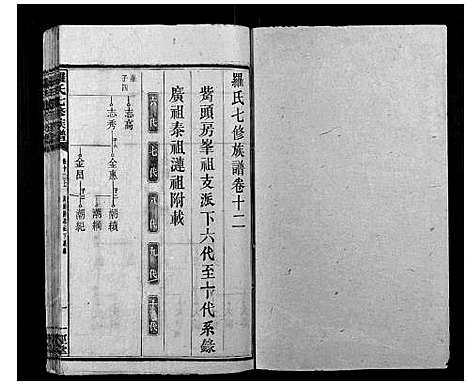 羅氏七修族譜卷十二
嵴頭房峯祖支派下六代至十代系錄
廣祖泰祖漣祖附載
六代
七代
八代
九代
十代
子四
志高
志秀
金惠
潮績
潮綱
金昌
潮紀
羅氏七修族譜